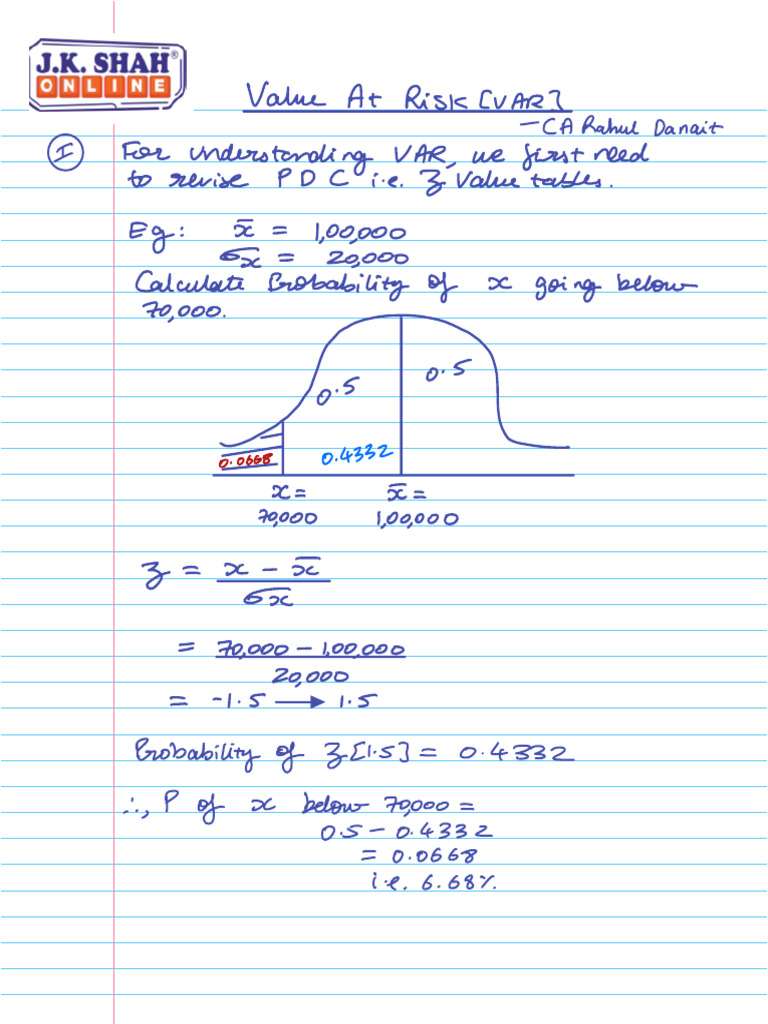 J.K. SHAH®
ONLINE
Value At Risk [VAR]
- CA Rahul Danait
I For understanding VAR, we first need
to revise P D C i.e. Z Value tables.
Eg: x̄ = 1,00,000
σx = 20,000
Calculate Probability of x going below
70,000.
0.5 0.5
0.0668 0.4332
x = x̄ =
70,000 1,00,000
Z = x - x̄
σx
= 70,000 - 1,00,000
20,000
= -1.5 → 1.5
Probability of Z [1.5] = 0.4332
∴, P of x below 70,000 =
0.5 - 0.4332
= 0.0668
i.e. 6.68%.